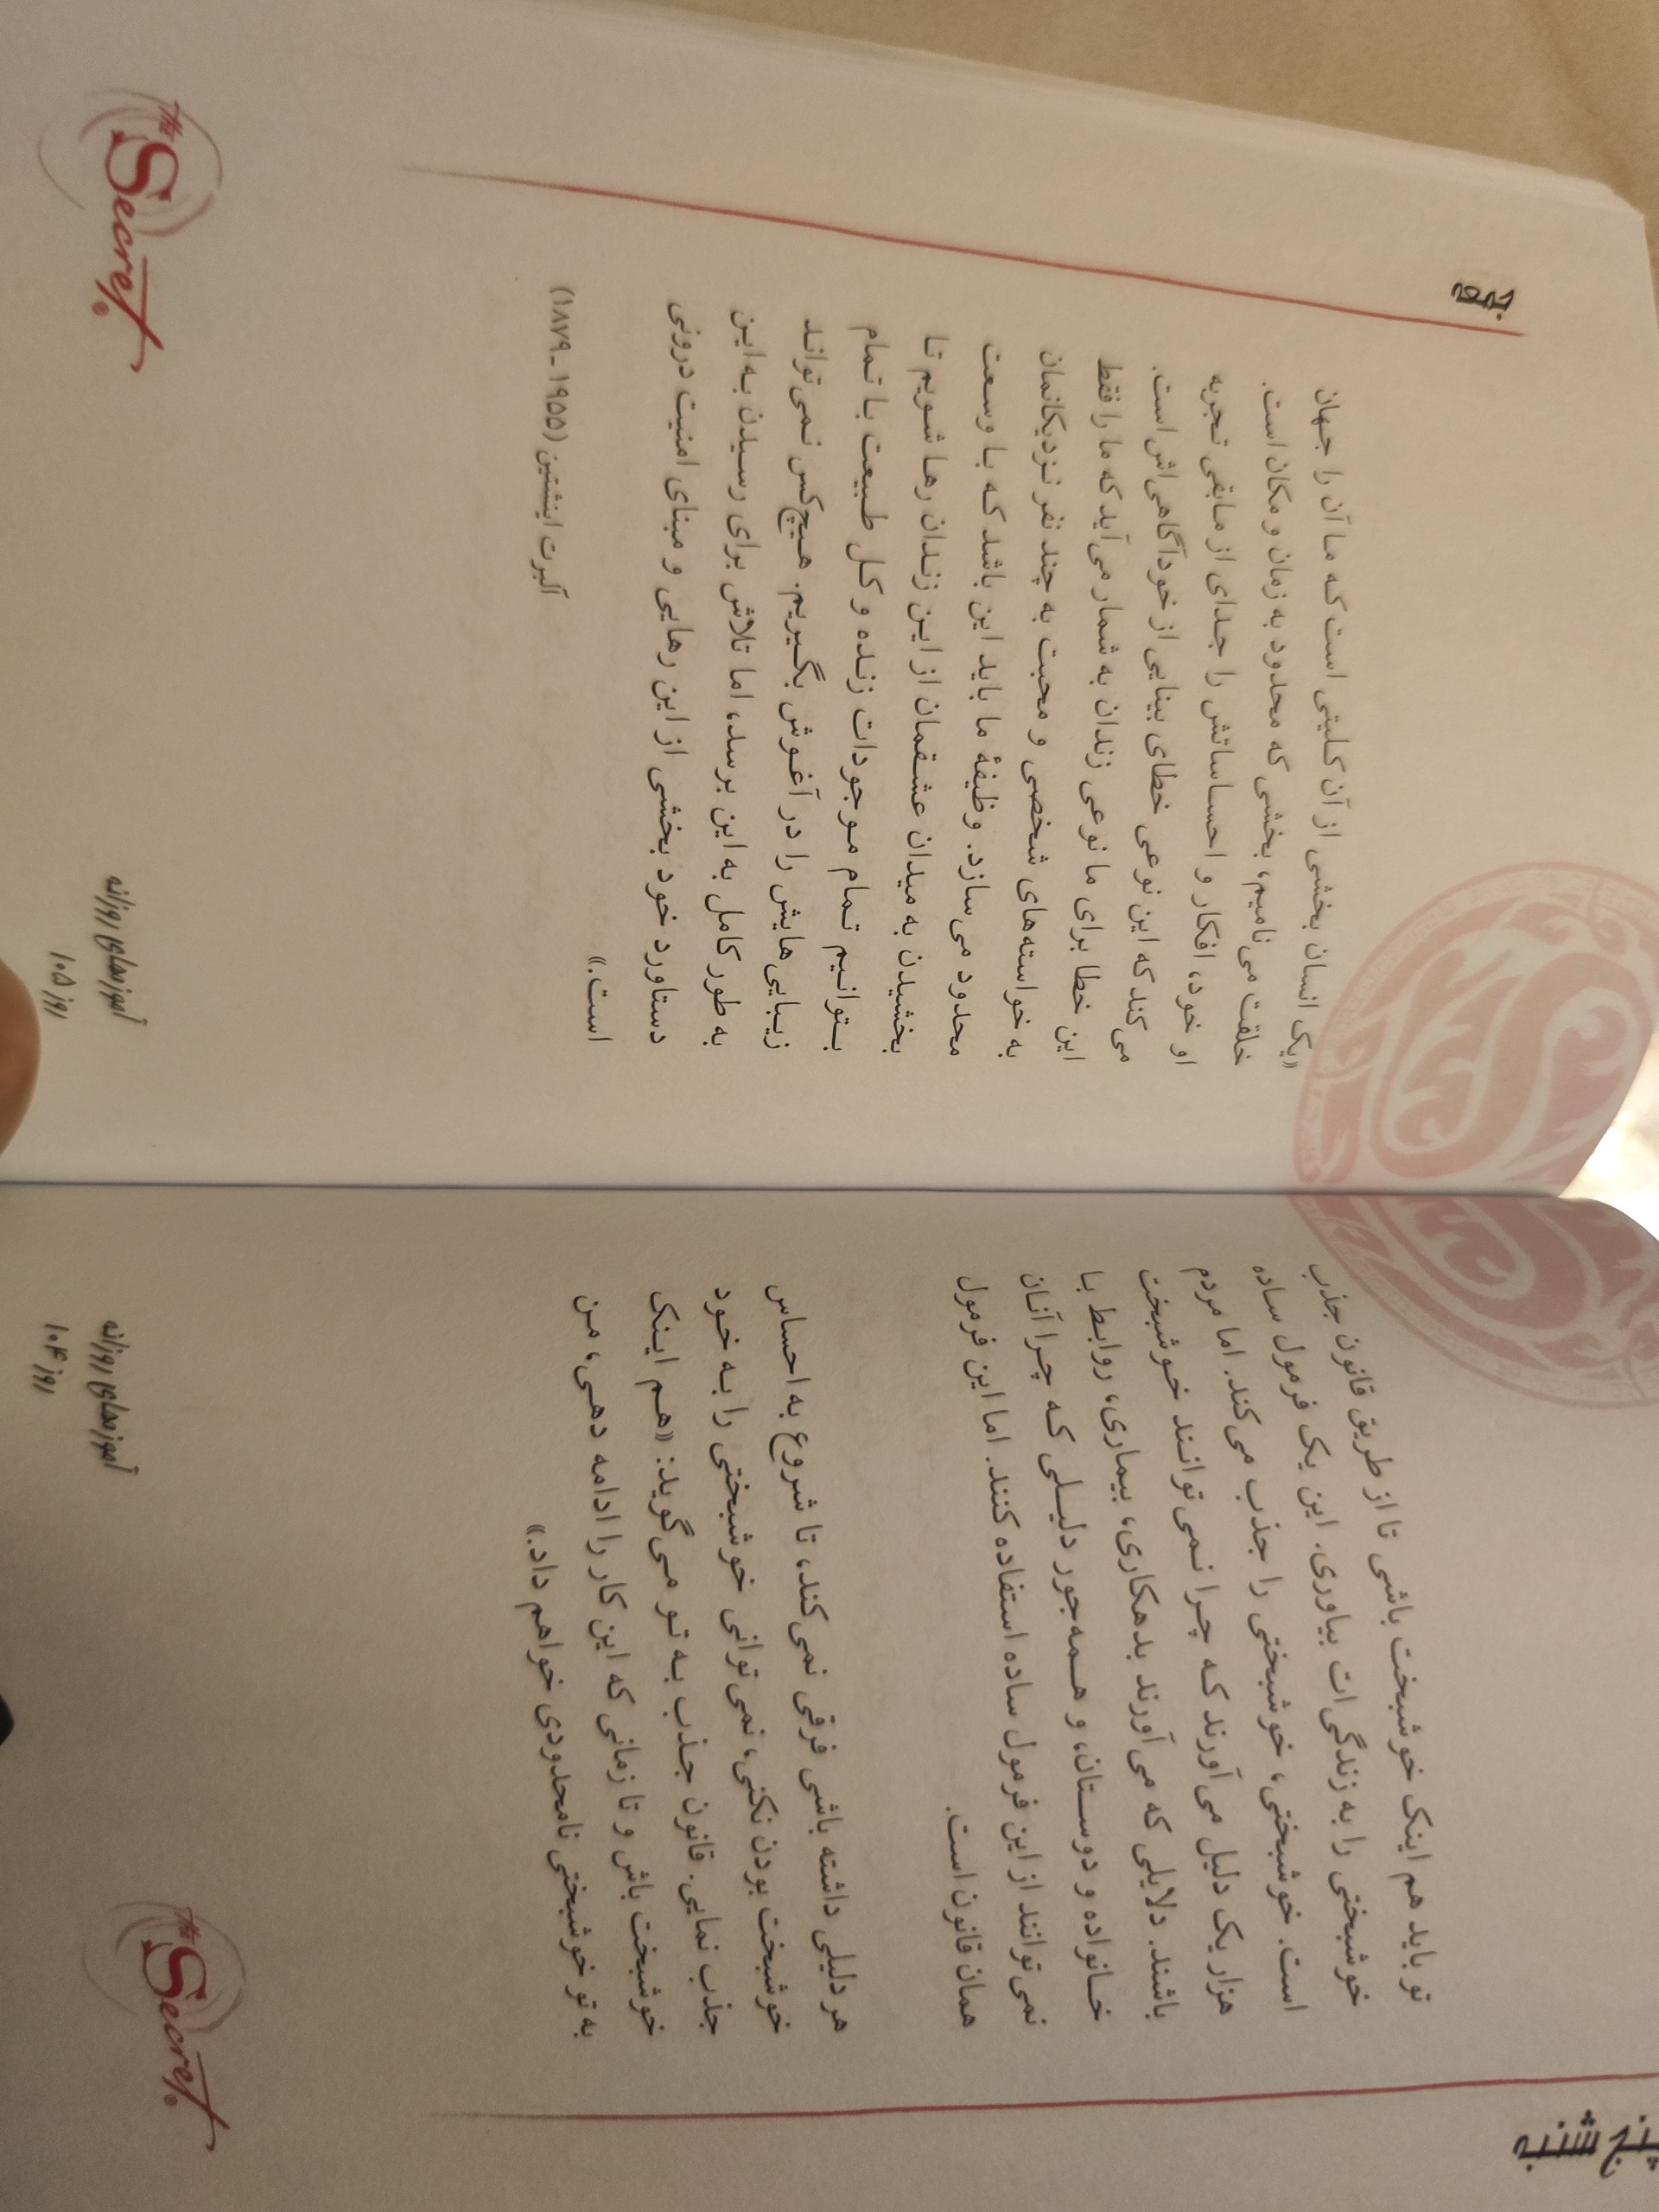 پنج شنبه
تو باید هم اینک خوشبخت باشی تا از طریق قانون جذب
خوشبختی را به زندگی ات بیاوری. این یک فرمول ساده
است. خوشبختی، خوشبختی را جذب می‌کند. اما مردم
هزار یک دلیل می‌آورند که چرا نمی‌توانند خوشبخت
باشند. دلایلی که می‌آورند بدهکاری، بیماری، روابط با
خانواده و دوستان، و همه‌جور دلیلی که چرا آنان
نمی‌توانند از این فرمول ساده استفاده کنند. اما این فرمول
همان قانون است.
هر دلیلی داشته باشی فرقی نمی‌کند، تا شروع به احساس
خوشبخت بودن نکنی، نمی‌توانی خوشبختی را به خود
جذب نمایی. قانون جذب به تو می‌گوید: «هم اینک
خوشبخت باش و تا زمانی که این کار را ادامه دهی، من
به تو خوشبختی نامحدودی خواهم داد.»
آموزه‌های روزانه
روز ۱۰۴
The Secret
جمعه
«یک انسان بخشی از آن کلیتی است که ما آن را جهان
خلقت می‌نامیم، بخشی که محدود به زمان و مکان است.
او خود، افکار و احساساتش را جدای از مابقی تجربه
می‌کند که این نوعی خطای بینایی از خودآگاهی‌اش است.
این خطا برای ما نوعی زندان به شمار می‌آید که ما را فقط
به خواسته‌های شخصی و محبت به چند نفر نزدیکانمان
محدود می‌سازد. وظیفهٔ ما باید این باشد که با وسعت
بخشیدن به میدان عشقمان از این زندان رها شویم تا
بتوانیم تمام موجودات زنده و کل طبیعت با تمام
زیبایی‌هایش را در آغوش بگیریم. هیچ‌کس نمی‌تواند
به طور کامل به این برسد، اما تلاش برای رسیدن به این
دستاورد خود بخشی از این رهایی و مبنای امنیت درونی
است.»
آلبرت اینشتین (۱۹۵۵ ـ ۱۸۷۹)
آموزه‌های روزانه
روز ۱۰۵
The Secret